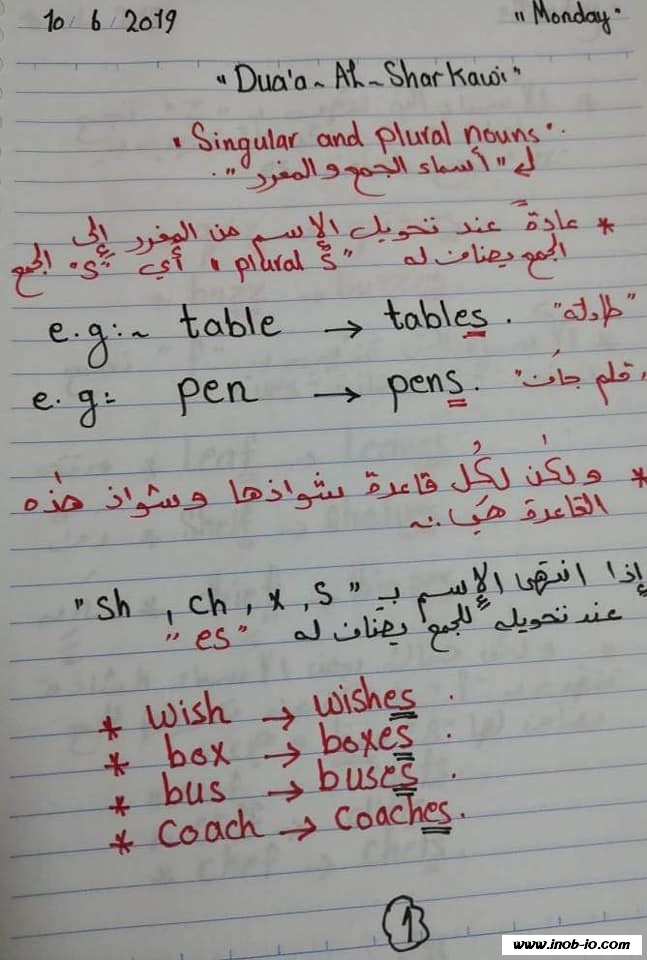 10/6/2019 "Monday"
"Dua'a - Al - Sharkawi"
"Singular and plural nouns".
لـ "أسماء الجمع والمفرد".
* عادةً عند تحويل الإسم من المفرد إلى
الجمع يضاف له "plural S" أي "S" الجمع
e.g:~ table → tables. "طاولة"
e.g: pen → pens. "قلم جاف"
* ولكن لكُل قاعدة شواذها وشواذ هذه
القاعدة هي :~
إذا انتهى الإسم بـ "sh , ch , x , s"
عند تحويله للجمع يضاف له "es"
* wish → wishes.
* box → boxes.
* bus → buses.
* coach → coaches.
1
www.inob-io.com